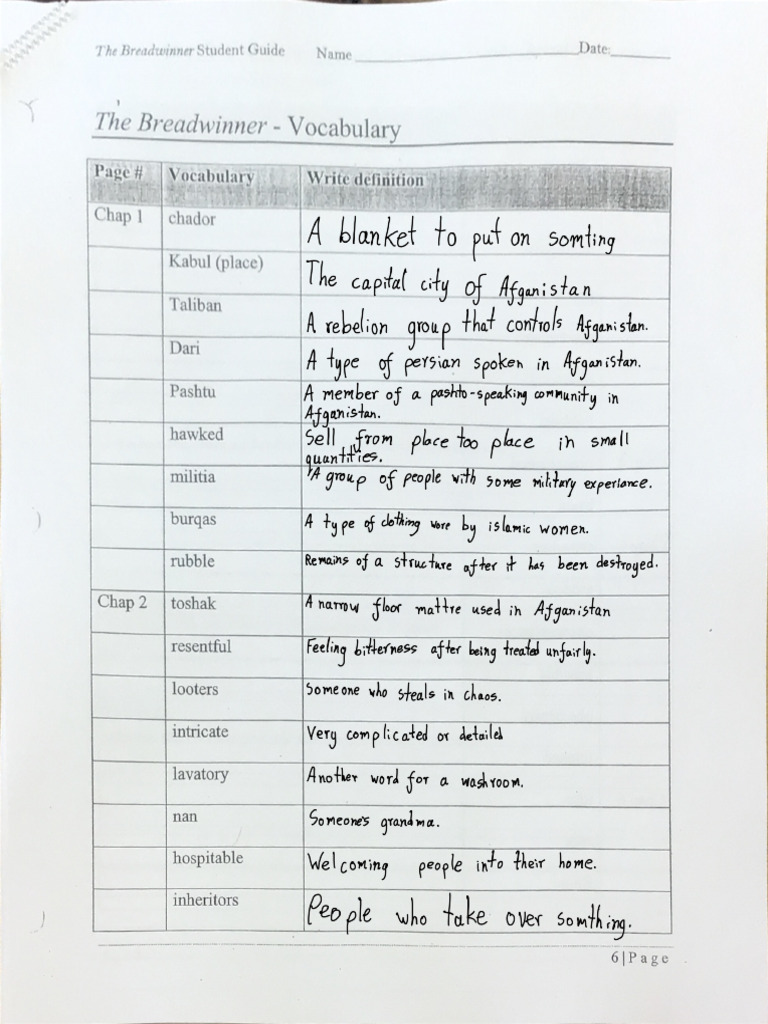 The Breadwinner Student Guide Name Date:
The Breadwinner - Vocabulary
Page # Vocabulary Write definition
Chap 1 chador A blanket to put on somting
Kabul (place) The capital city of Afganistan
Taliban A rebelion group that controls Afganistan.
Dari A type of persian spoken in Afganistan.
Pashtu A member of a pashto-speaking community in
Afganistan.
hawked Sell from place too place in small
quantities.
militia A group of people with some military experiance.
burqas A type of clothing wore by islamic women.
rubble Remains of a structure after it has been destroyed.
Chap 2 toshak A narrow floor mattre used in Afganistan
resentful Feeling bitterness after being treated unfairly.
looters Someone who steals in chaos.
intricate Very complicated or detailed
lavatory Another word for a washroom.
nan Someone's grandma.
hospitable Welcoming people into their home.
inheritors People who take over somthing.
6|Page